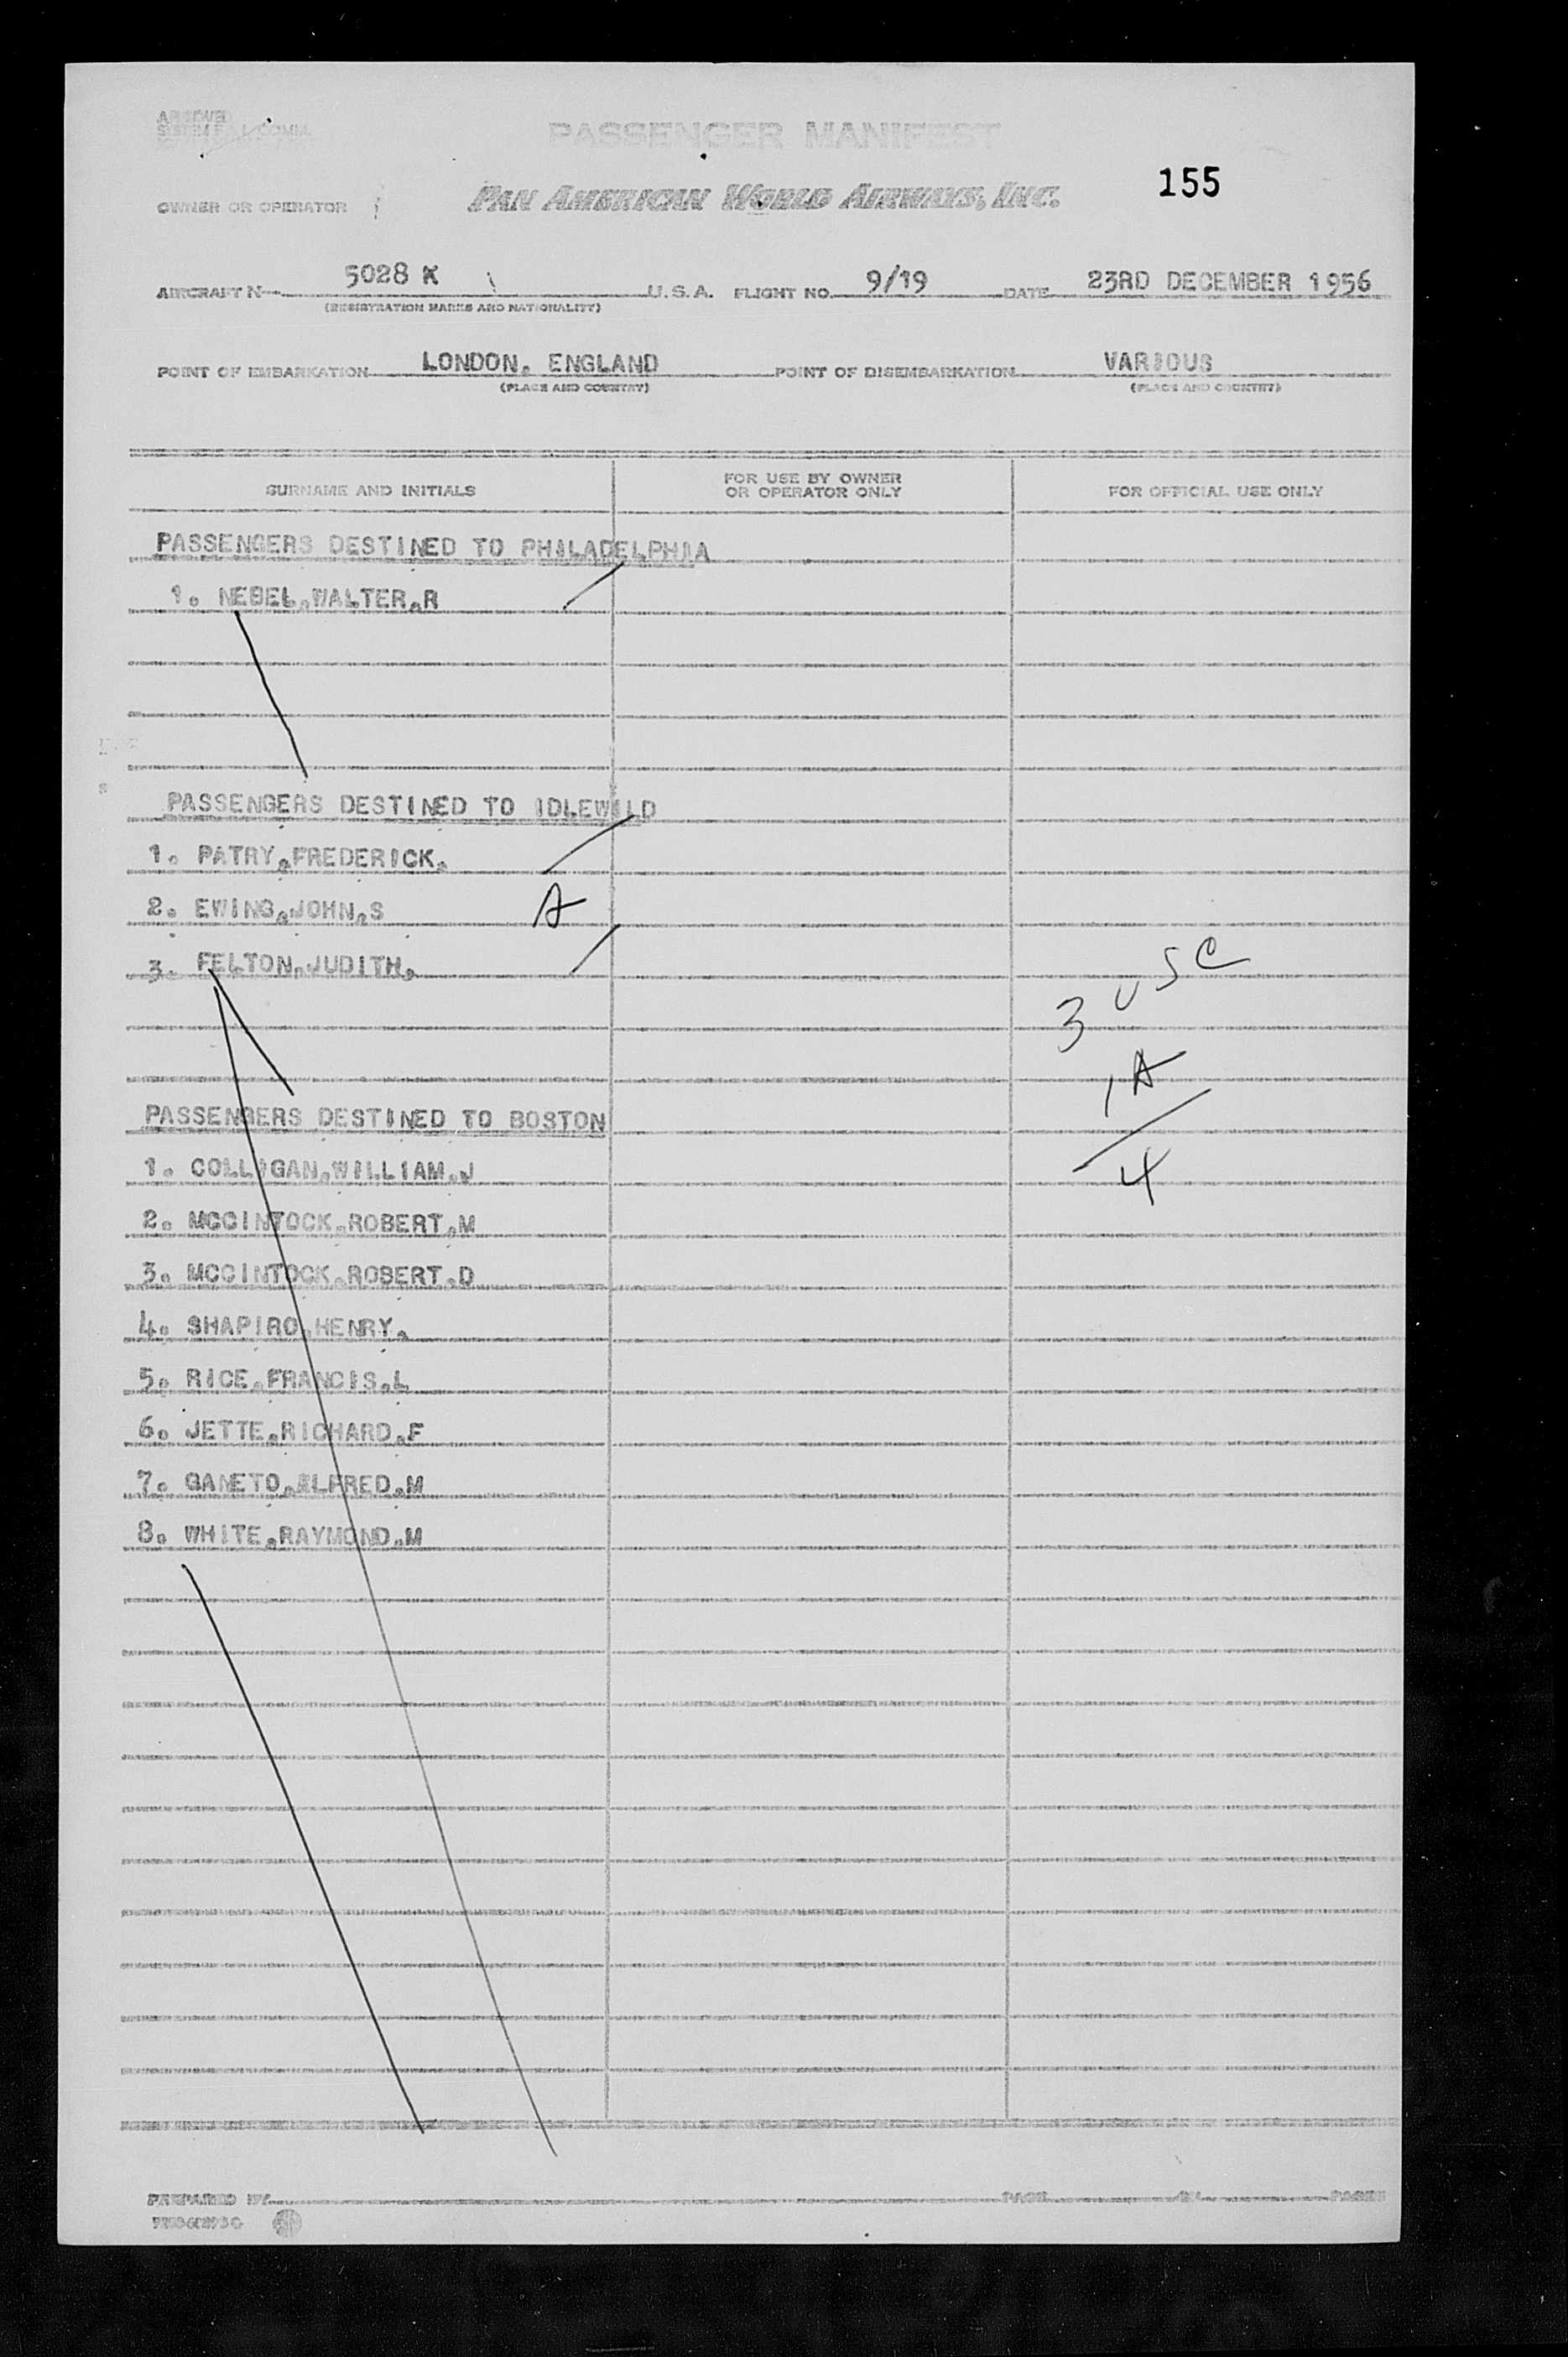 PASSENGER MANIFEST
155
OWNER OR OPERATOR PAN AMERICAN WORLD AIRWAYS, INC.
AIRCRAFT N 5028 K U.S.A. FLIGHT NO. 9/19 DATE 23RD DECEMBER 1956
(REGISTRATION MARKS AND NATIONALITY)
POINT OF EMBARKATION LONDON. ENGLAND POINT OF DISEMBARKATION VARIOUS
(PLACE AND COUNTRY) (PLACE AND COUNTRY)
SURNAME AND INITIALS FOR USE BY OWNER OR OPERATOR ONLY FOR OFFICIAL USE ONLY
PASSENGERS DESTINED TO PHILADELPHIA
1. NEBEL.WALTER.R
PASSENGERS DESTINED TO IDLEWILD
1. PATRY.FREDERICK.
2. EWING.JOHN.S A
3. FELTON.JUDITH.
3 USC
1 A
4
PASSENGERS DESTINED TO BOSTON
1. COLLIGAN.WILLIAM.J
2. MCCINTOCK.ROBERT.M
3. MCCINTOCK.ROBERT.D
4. SHAPIRO.HENRY.
5. RICE.FRANCIS.L
6. JETTE.RICHARD.F
7. GANETO.ALFRED.M
8. WHITE.RAYMOND.M
PREPARED BY PAGE OF PAGES